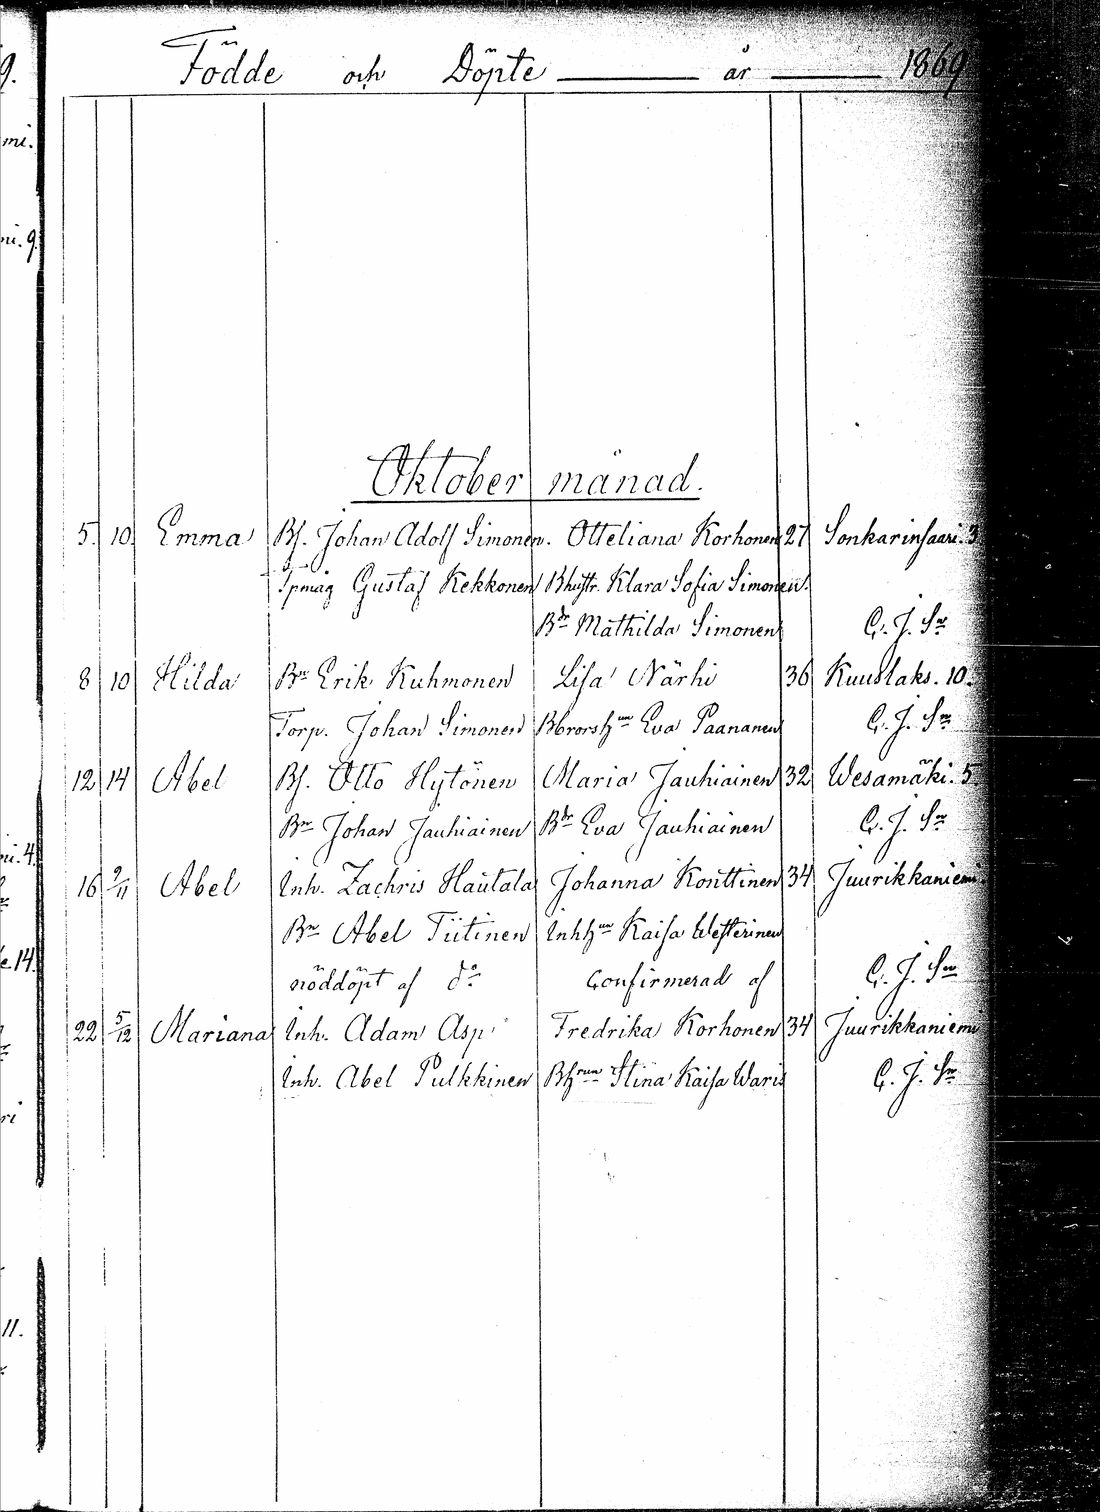 Födde och Döpte år 1869
Oktober månad.
5. 10. Emma Bs. Johan Adolf Simonen. Otteliana Korhonen 27 Sonkarinsaari. 3
Gustaf Kekkonen Bhustr. Klara Sofia Simonen.
Bdr Mathilda Simonen C. J. Sn
8 10 Hilda Bn Erik Kuhmonen Lisa Närhi 36 Kuuslaks. 10.
Torp. Johan Simonen Bbrorshun Eva Paananen C. J. Sn
12 14 Abel Bs. Otto Hytönen Maria Jauhiainen 32 Wesamäki. 5
Bn Johan Jauhiainen Bdr Eva Jauhiainen C. J. Sn
16 2/11 Abel Inh. Zachris Hautala Johanna Konttinen 34 Juurikkaniemi
Bn Abel Tiitinen Inhhun Kaisa Westerinen
nöddöpt af do Confirmerad af C. J. Sn
22 5/12 Mariana Inh. Adam Asp Fredrika Korhonen 34 Juurikkaniemi
Inh. Abel Pulkkinen Bhrun Stina Kaisa Waris C. J. Sn